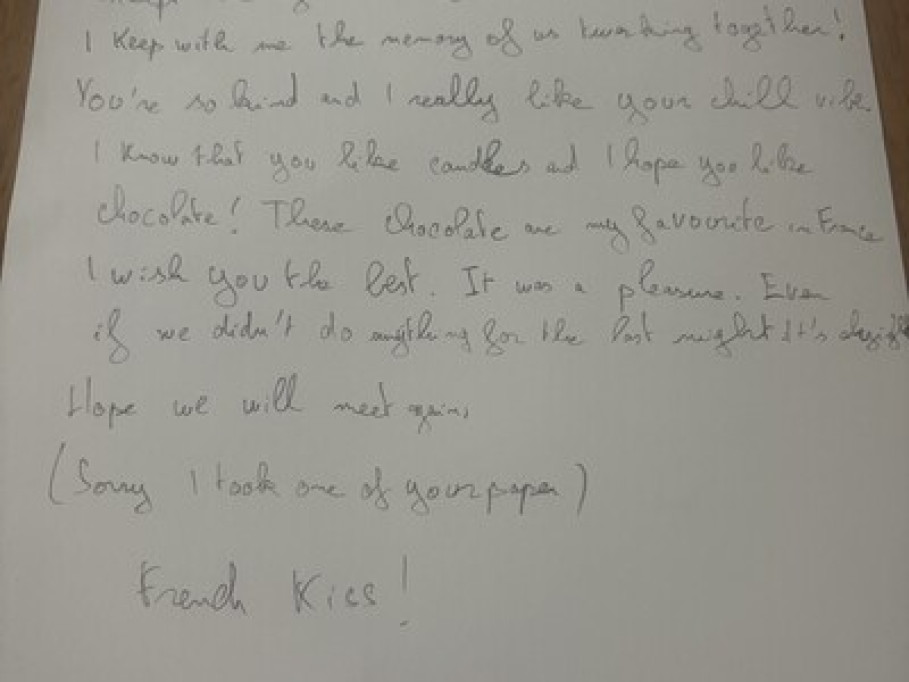 I Keep with me the memory of us twerking together!
You're so kind and I really like your chill vibe.
I know that you like candles and I hope you like
chocolate! These chocolate are my favourite in France
I wish you the best. It was a pleasure. Even
if we didn't do anything for the last night it's
Hope we will meet again,
(Sorry I took one of your paper)
French Kiss!